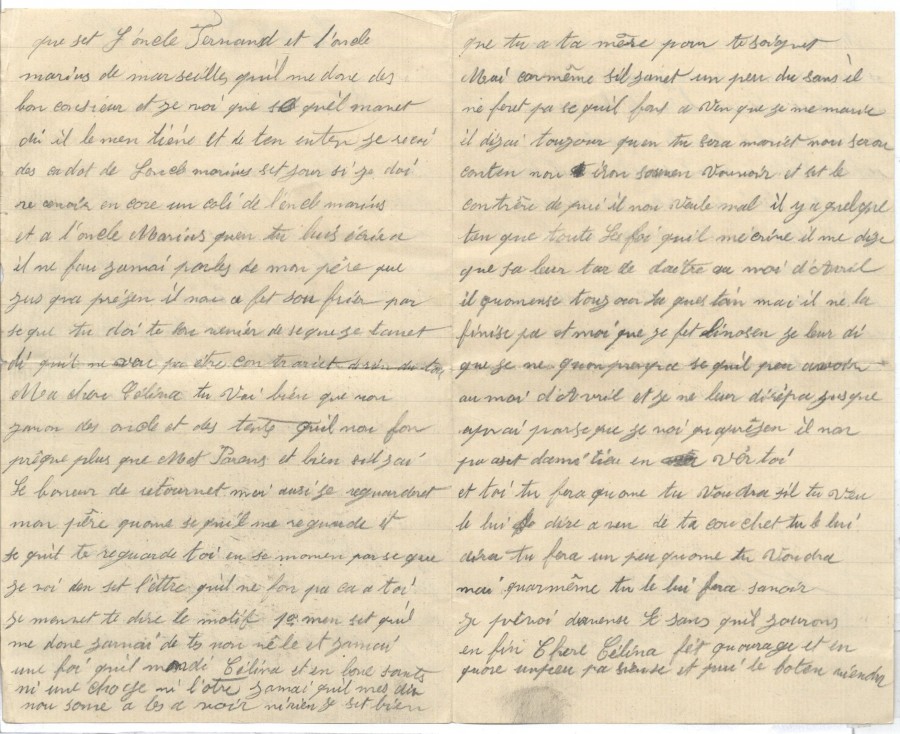 que set L'oncle Fernand et l'oncle
marius de marseilles qu'il me done des
bon conseieur et je voi que qu'el manet
di il le men tiéne et de ten enten je recoi
des cadot de Loncle marius set jour si je doi
re cevoir en core un coli de l'encle marius
et a l'oncle Marius quen tu leus écrira
il ne fau jamai parles de mon pére que
jus qua présen il nou a fet soufrier par
se que tu doi te sou venier de se que se tanet
di qu'il ne veu pa étre con trariet
Ma chere Céléna tu Voi bien que nou
zavon des oncle et des tente quil nou fon
prêque plus que Met Parans et bien sil j'ai
Le boneur de retournet moi ausi je reguarderet
mon pére quome se qu'il me reguarde et
se qu'it te reguarde toi en se momen par se que
je voi dan set l'éttre qu'il ne fon pa ca a toi
je men vet te dire le motif 1e men set qu'il
me done jamai de tes nou vêle et jamai
une foi qu'il m di Céléna et en bone santé
ni une chosse ni l'otre jamai quil mes dis
nou some a les a voir ni rien et set bien
que tu a ta mére pour te soignet
Mai carméme s'il zavet un peu du sans il
ne feret pa se qu'il font a ven que je me marie
il dizai toujour quen tu sera mariet nou seron
conten nou iron souven Vou voir et set le
contrére de pui il nou veule mal il y a quelque
ten que toute les foi qu'il m'écrive il me dize
que sa leur tar de d'aitre au moi d'Avril
il quomense toujour la questoin mai il ne la
finise pa et moi que je fet Linosen je leur di
que je ne quonpren pa se quil peu avoir
au moi d'Avril et je ne leur diré pa jusque
aprai parse que je voi qu'aprêsen il non
pa aset d'ami tiée en vêr toi
et toi tu fera quome tu voudra sil tu veu
le lui dire a ven de ta couchet tu le lui
dira tu fera un peu quome tu voudra
mai quarméme tu le lui fera savoir
je prévoi davense le sans qu'il zourons
en fin Chere Céléna fét quourage et en
quore unpeu pa siense et pui le boten